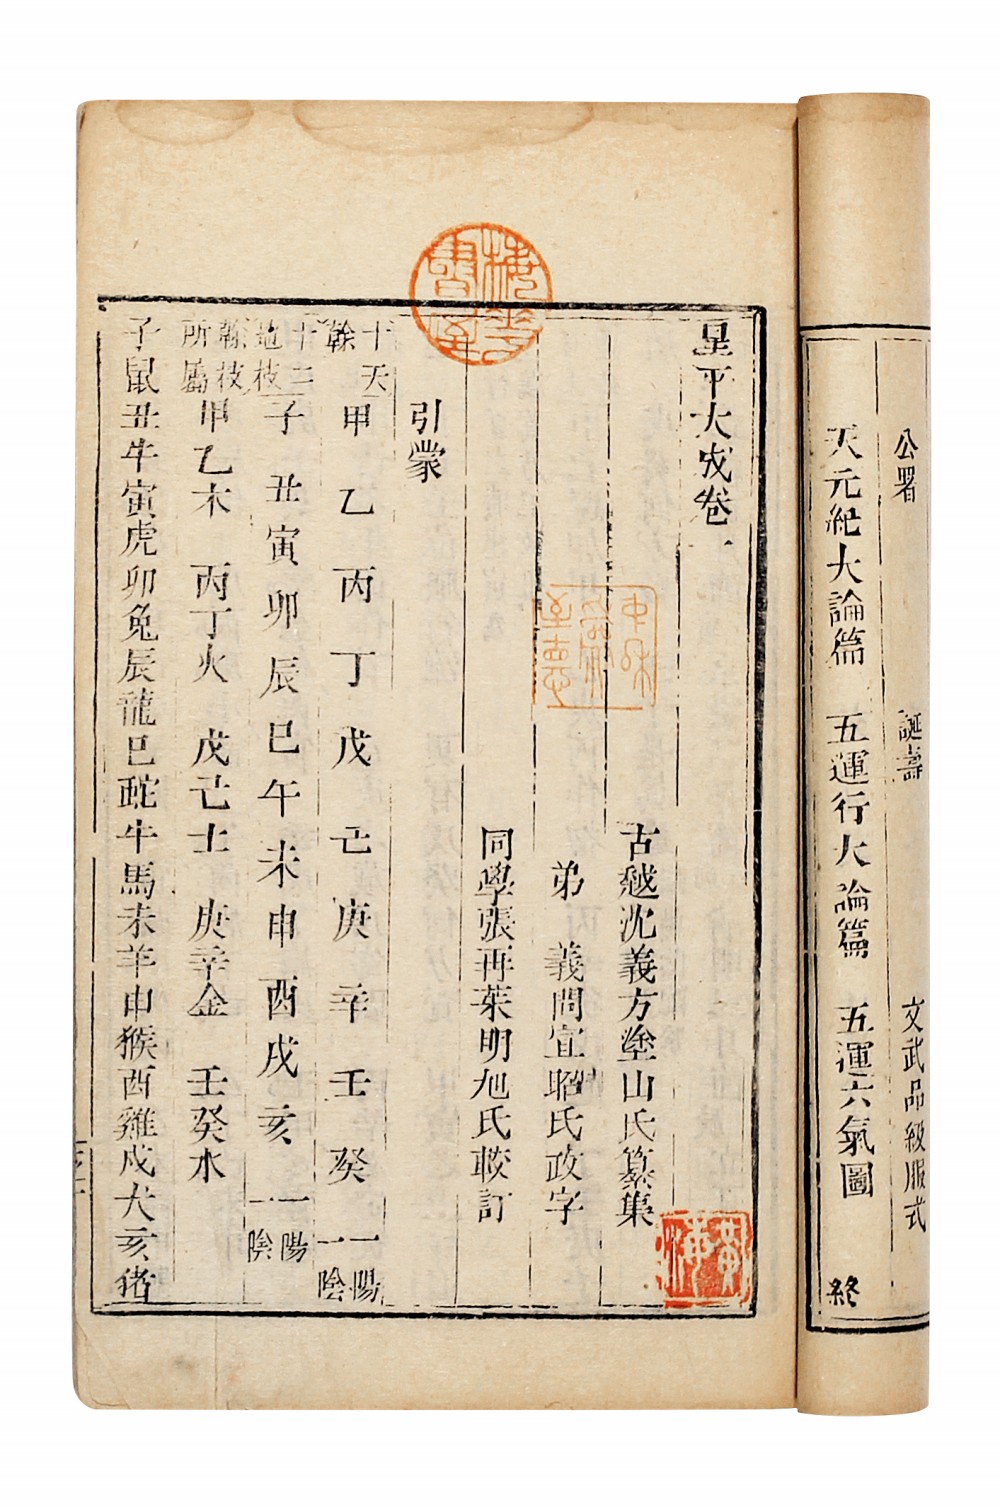 公署 誕壽 文武品級服式
天元紀大論篇 五運行大論篇 五運六氣圖 終
星平大成卷一
古越沈義方塗山氏纂集
弟 義問宜昭氏政字
同學張再茱明旭氏較訂
引蒙
十天幹 甲乙丙丁戊己庚辛壬癸 一陽一陰
十二地枝 子丑寅卯辰巳午未申酉戌亥 一陽一陰
幹枝所屬 甲乙木 丙丁火 戊己土 庚辛金 壬癸水
子鼠丑牛寅虎卯兔辰龍巳蛇牛馬未羊申猴酉雞戌犬亥猪
梅華書屋